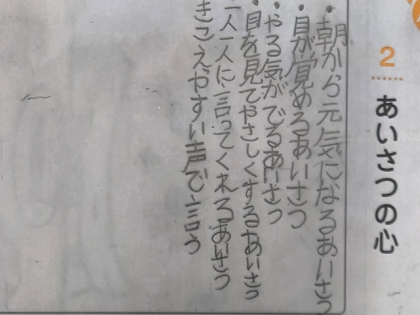 2
あいさつの心
・朝から元気になるあいさつ
・目が覚めるあいさつ
・やる気がでるあいさつ
・目を見てやさしくするあいさつ
一人一人に言ってくれるあいさつ
きこえやすい声で言う